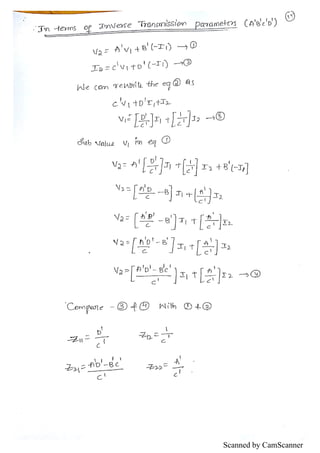 (20)
In terms of Inverse Transmission parameters (A'B'C'D')
V2 = A'V1 + B'(-I1) → ①
I2 = C'V1 + D'(-I1) → ②
We can rewrite the eq ② as
C'V1 + D'I1 + I2
V1 = [D'/C'] I1 + [1/C'] I2 → ③
Sub value V1 in eq ①
V2 = A' [[D'/C'] I1 + [1/C'] I2 + B'(-I1)
V2 = [A'D/C - B] I1 + [A'/C'] I2
V2 = [A'D'/C - B'] I1 + [A'/C'] I2
V2 = [A'D' - B'/C'] I1 + [A'/C'] I2
V2 = [A'D' - B'C'/C'] I1 + [A'/C'] I2 → ④
Compare - ③ & ④ With ① & ②
Z11 = D'/C' Z12 = 1/C'
Z21 = A'D' - B'C'/C' Z22 = A'/C'
Scanned by CamScanner